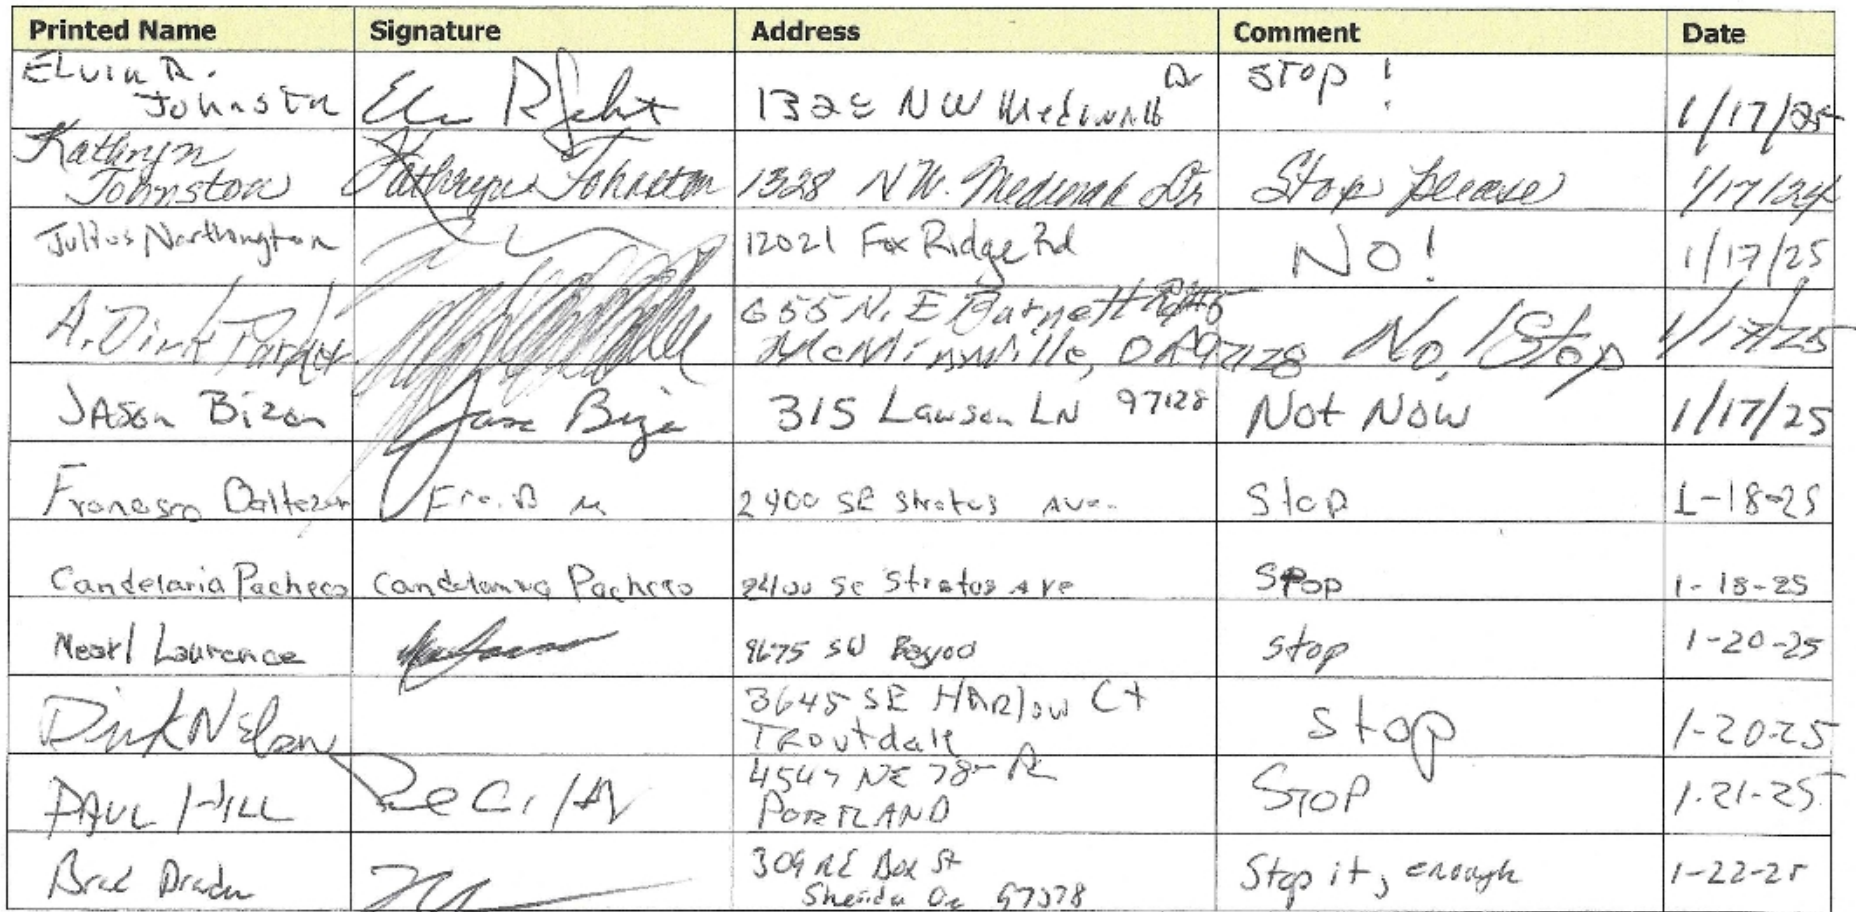 Printed Name Signature Address Comment Date
Elvin R. Johnston 1328 NW Medinah Dr STOP! 1/17/25
Kathryn Johnston Kathryn Johnston 1328 N.W. Medinah Dr Stop please 1/17/24
Julius Northington 12021 Fox Ridge Rd NO! 1/17/25
A. Dirk Parker 655 N.E Burnett Rd #5
McMinnville, OR 97128 No, Stop 1/17/25
JASON Bizon 315 Lawson LN 97128 Not Now 1/17/25
2400 SE Stratus Ave. Stop 1-18-25
Candelaria Pacheco Candelaria Pacheco 2400 SE Stratus Ave Stop 1-18-25
Laurence 9675 SW stop 1-20-25
Dirk Nelson 3645 SE HARlow Ct
TRoutdale stop 1-20-25
PAUL HILL 4547 NE 78th
PORTLAND STOP 1-21-25
Brad 309 NE St
97378 Stop it, enough 1-22-25